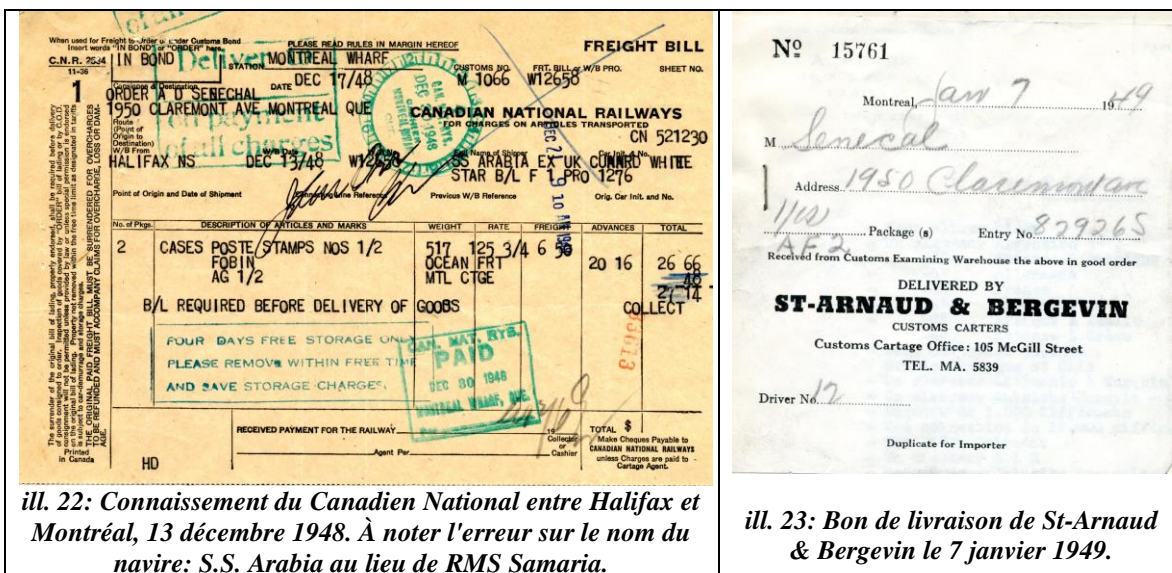 of all
When used for Freight to Order or under Customs Bond
Insert words "IN BOND" or "ORDER" here
PLEASE READ RULES IN MARGIN HEREOF
FREIGHT BILL
C.N.R. 2534
11-36
IN BOND
STATION MONTREAL WHARF
CUSTOMS NO.
FRT. BILL or W/B PRO.
SHEET NO.
DATE DEC 17/48
M 1066 W12658
1
Consignee & Destination
ORDER A D SENECHAL
1950 CLAREMONT AVE MONTREAL QUE
Delivery
on payment
of all charges
CANADIAN NATIONAL RAILWAYS
FOR CHARGES ON ARTICLES TRANSPORTED
Route
(Point of
Origin to
Destination)
CN 521230
W/B From
HALIFAX NS DEC 13/48 W12658 SS ARABIA EX UK CUNARD WHITE
STAR B/L F 1 PRO 1276
Point of Origin and Date of Shipment
Connecting Line Reference
Previous W/B Reference
Orig. Car Init. and No.
DEC 21 9 10 AM 1948
No. of Pkgs.
DESCRIPTION OF ARTICLES AND MARKS
WEIGHT
RATE
FREIGHT
ADVANCES
TOTAL
2 CASES POSTE STAMPS NOS 1/2 517 125 3/4 6 50
FOBIN OCEAN FRT 20 16 26 66
AG 1/2 MTL CTGE 48
27 14
B/L REQUIRED BEFORE DELIVERY OF GOODS COLLECT
FOUR DAYS FREE STORAGE ONLY
PLEASE REMOVE WITHIN FREE TIME
AND SAVE STORAGE CHARGES.
CAN. NAT. RYS.
PAID
DEC 30 1948
MONTREAL WHARF, QUE.
33613
RECEIVED PAYMENT FOR THE RAILWAY
19
Agent Per
Collector
or
Cashier
TOTAL $
Make Cheques Payable to
CANADIAN NATIONAL RAILWAYS
unless Charges are paid to
Cartage Agent.
The surrender of the original bill of lading, properly endorsed, shall be required before delivery
of goods consigned to order. Inspection of goods covered by "ORDER" bill of lading or by C.O.D.
consignment will not be permitted unless provided by law or unless special permission is endorsed
on the original bill of lading. Property not removed within the free time limit as designated in tariffs
is subject to car-demurrage and storage charges.
THE ORIGINAL PAID FREIGHT BILL MUST BE SURRENDERED FOR OVERCHARGES
TO BE REFUNDED AND MUST ACCOMPANY CLAIMS FOR OVERCHARGE, LOSS OR DAM-
AGE.
Printed
in Canada
HD
ill. 22: Connaissement du Canadien National entre Halifax et
Montréal, 13 décembre 1948. À noter l'erreur sur le nom du
navire: S.S. Arabia au lieu de RMS Samaria.
Nº 15761
Montreal, Jan 7 1949
M Senecal
Address 1950 Claremont ave
Package (s) Entry No. 829265
AF2
Received from Customs Examining Warehouse the above in good order
DELIVERED BY
ST-ARNAUD & BERGEVIN
CUSTOMS CARTERS
Customs Cartage Office: 105 McGill Street
TEL. MA. 5839
Driver No. 12
Duplicate for Importer
ill. 23: Bon de livraison de St-Arnaud
& Bergevin le 7 janvier 1949.